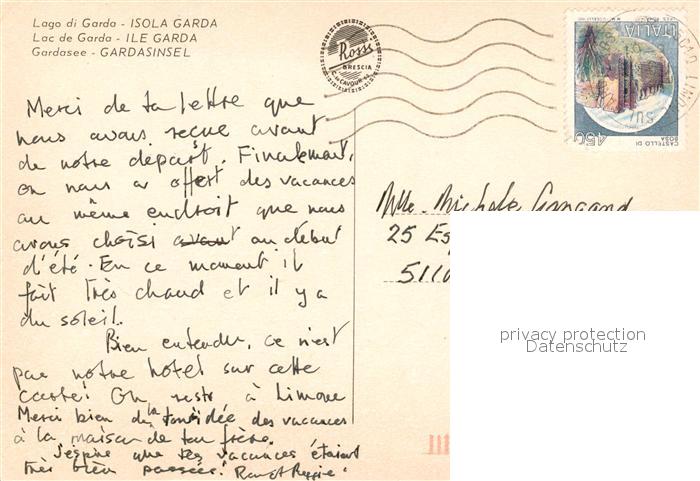 Lago di Garda - ISOLA GARDA
Lac de Garda - ILE GARDA
Gardasee - GARDASINSEL
Rossi
BRESCIA
C. CAVOUR
ITALIA
450
CASTELLO DI
BOSA
Merci de ta lettre que
nous avons reçue avant
de notre départ. Finalement,
on nous a offert des vacances
au même endroit que nous
avons choisi avant au début
d'été. En ce moment il
fait très chaud et il y a
du soleil.
Bien entendu, ce n'est
pas notre hotel sur cette
carte! On reste à Limone
Merci bien de la des vacances
à la maison de ton frère.
J'éspère que tes vacances étaient
très bien passées!
Mlle. Michele
25
privacy protection
Datenschutz